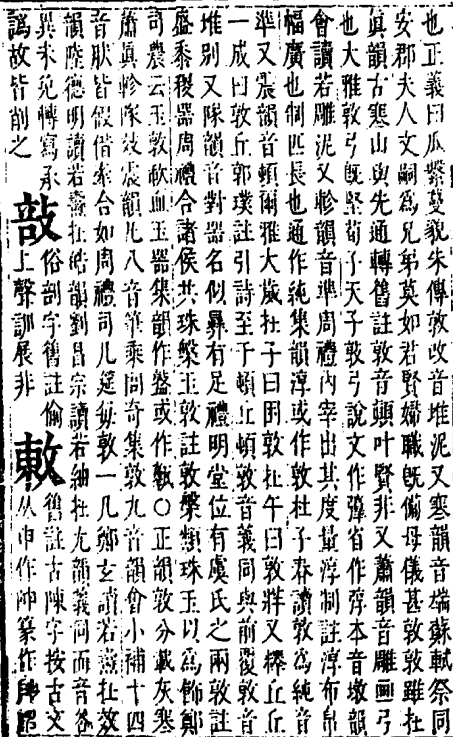 也正義曰瓜繫蔓貌朱傳敦改音堆泥又寒韻音端蘇軾祭同
安郡夫人文嗣爲兄弟莫如若賢婦職旣備母儀甚敦敦雖在
眞韻古寒山與先通轉舊註敦音顛叶賢非又蕭韻音雕画弓
也大雅敦弓旣堅荀子天子敦弓說文作弴省作弤本音墩韻
會讀若雕泥又軫韻音準周禮內宰出其度量淳制註淳布帛
幅廣也制匹長也通作純集韻淳或作敦杜子春讀敦爲純音
準又震韻音頓爾雅大歲在子曰困敦在午曰敦牂又丘丘
一成曰敦丘郭璞註引詩至于頓丘頓敦音義同與前覆敦音
堆別又隊韻音對器名似彝有足禮明堂位有虞氏之兩敦註
盛黍稷器周禮合諸侯共珠槃玉敦註敦槃類珠玉以爲飾鄭
司農云玉敦歃血玉器集韻作或作○正韻敦分載灰寒
蕭眞軫隊效震韻凡八音筆乘同奇集敦九音韻會小補十四
音肰皆假借案台如周禮司几筵每敦一几鄭玄讀若燾在效
韻陸德明讀若燾在皓韻劉昌宗讀若紬在尤韻義同而音各
異未免轉寫承
譌故皆削之
敨
俗剖字舊註偷
上聲訓展非
舊註古陳字按古文
从申作篆作